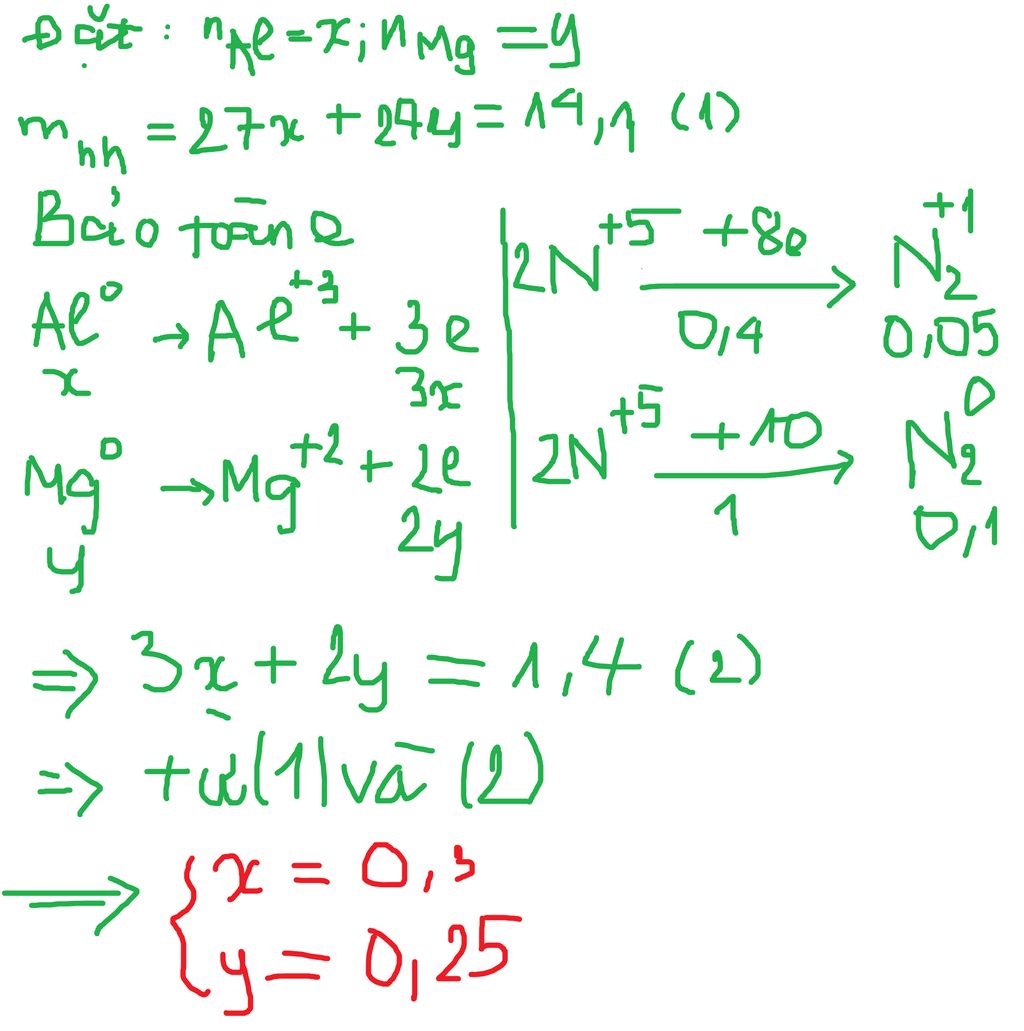 Đặt : nAl = x ; nMg = y
mhh = 27x + 24y = 14,1 (1)
Bảo toàn e
Al⁰ → Al⁺³ + 3e
x 3x
Mg⁰ → Mg⁺² + 2e
y 2y
2N⁺⁵ +8e → N₂⁺¹
0,4 0,05
2N⁺⁵ +10 → N₂⁰
1 0,1
⇒ 3x + 2y = 1,4 (2)
⇒ từ (1) và (2)
⇒ { x = 0,3
y = 0,25